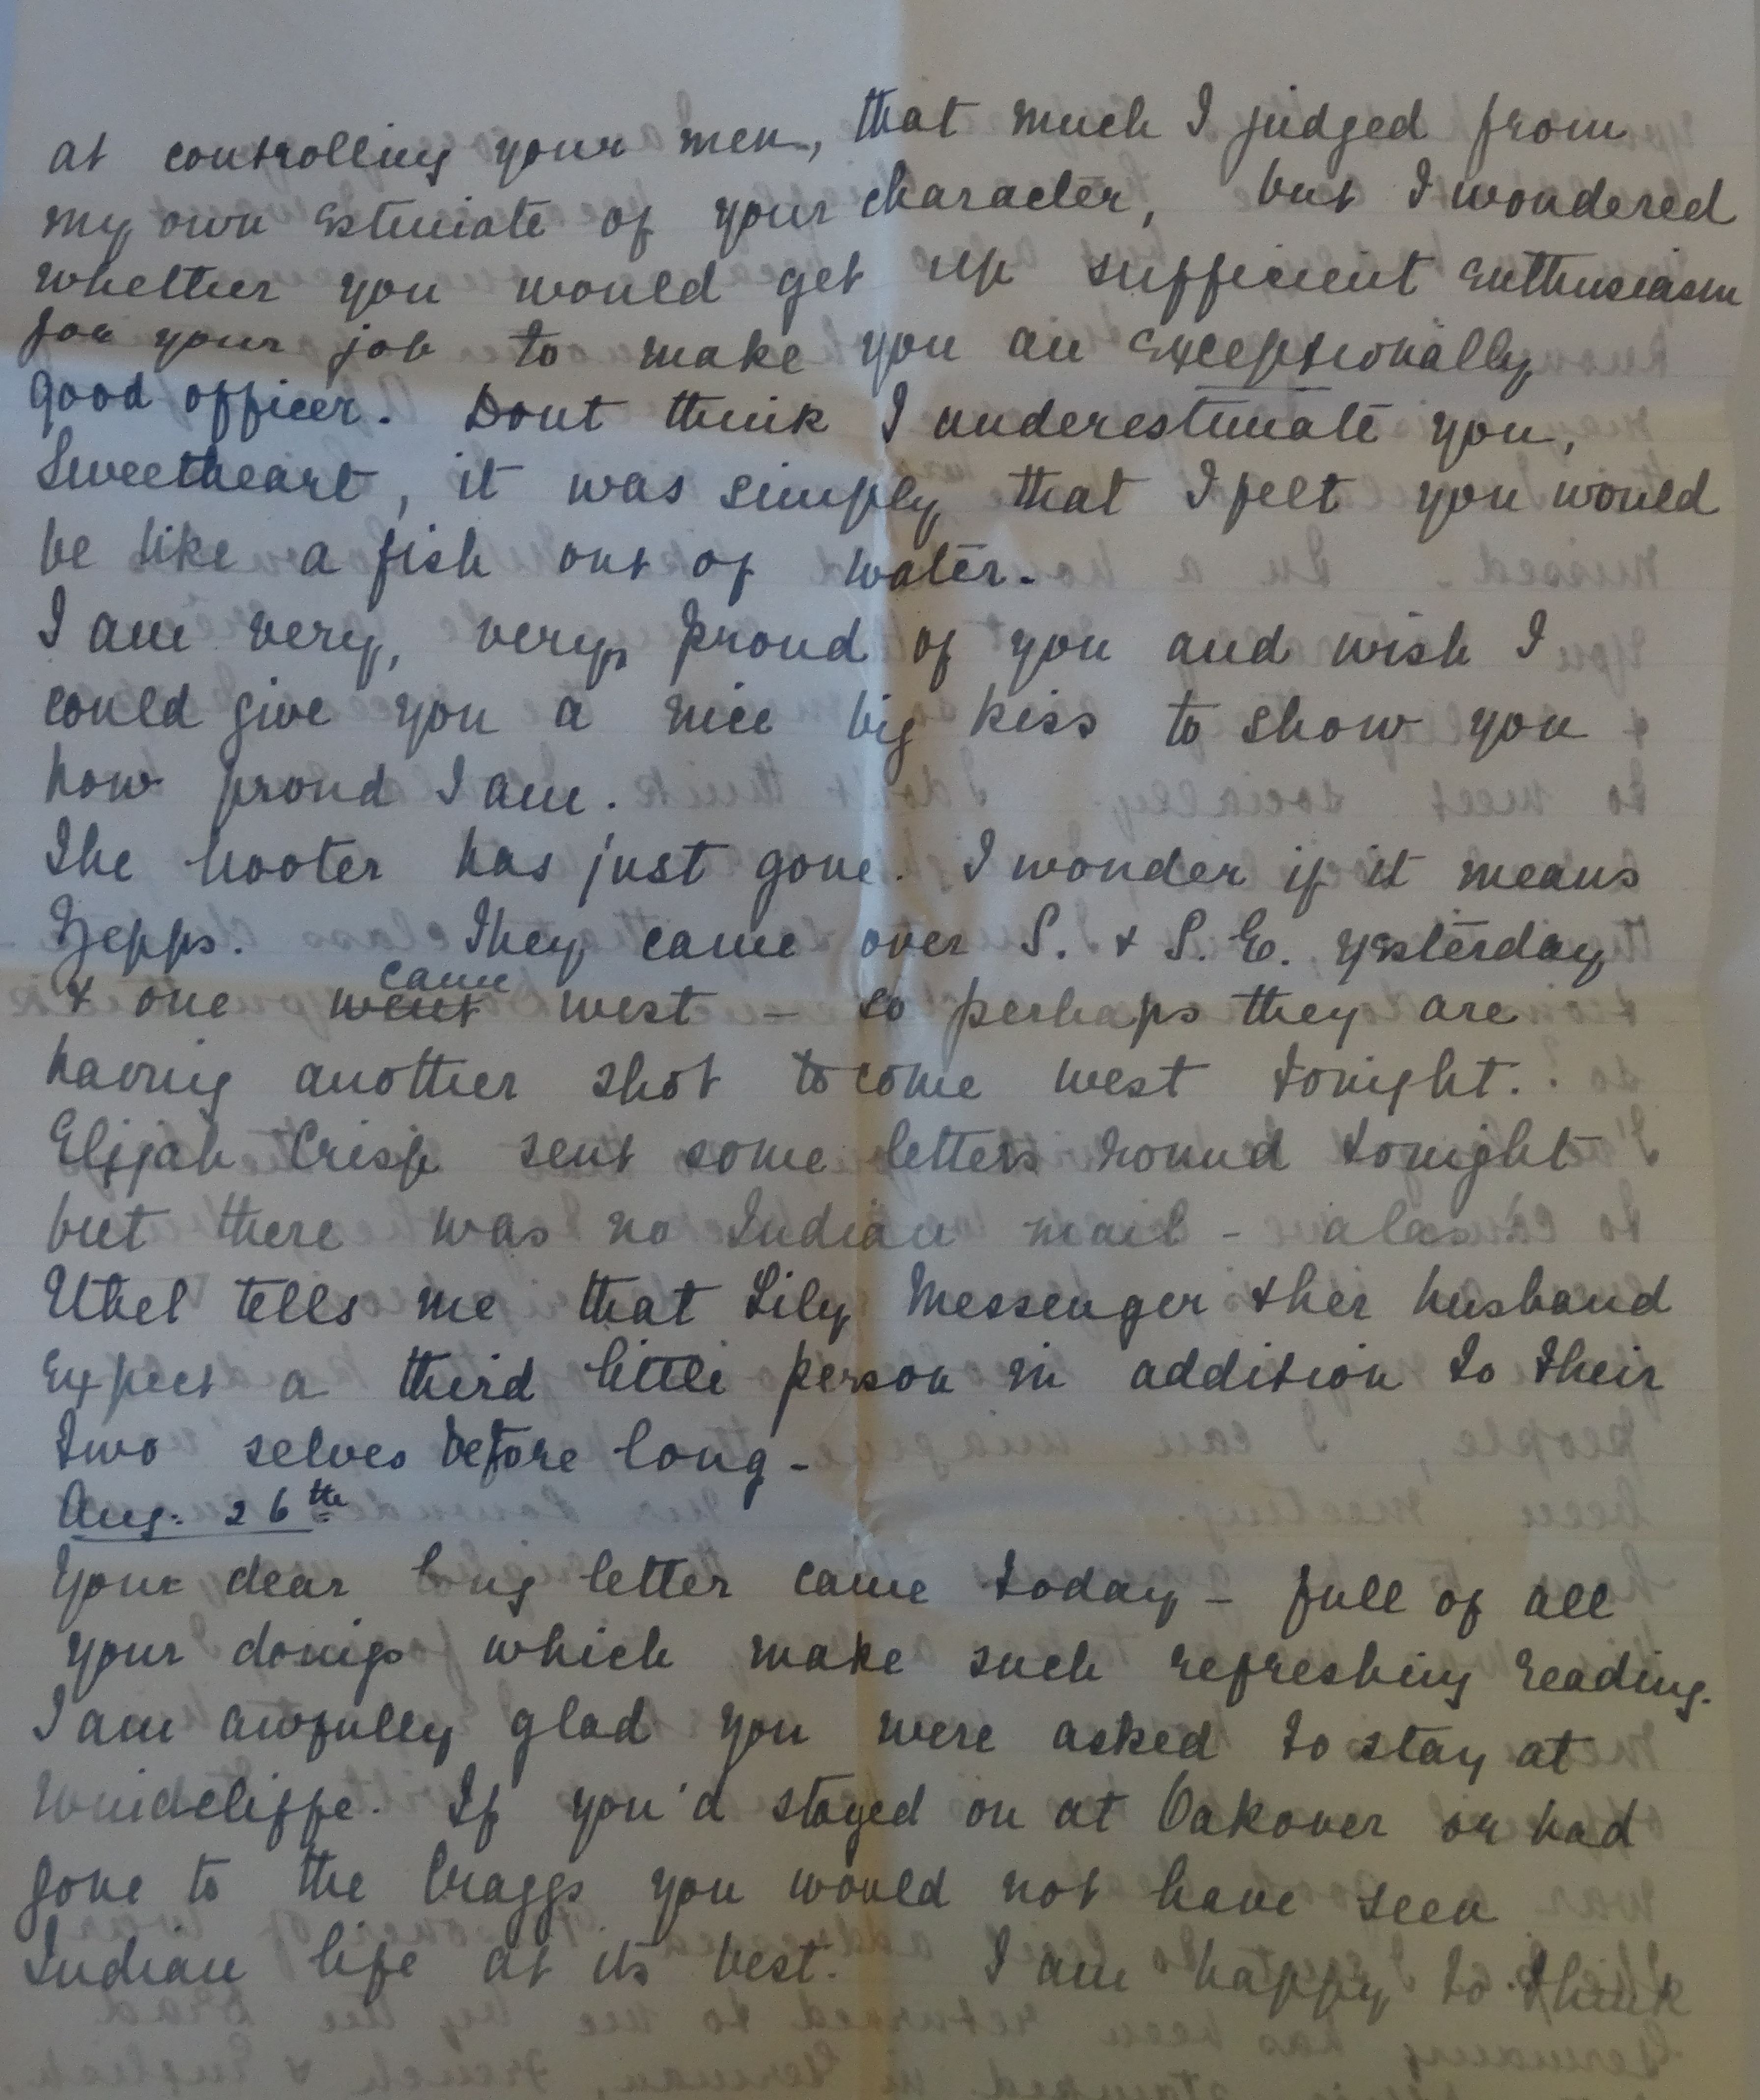 at controlling your men, that much I judged from
my own estimate of your character, but I wondered
whether you would get up sufficient enthusiasm
for your job to make you an exceptionally
good officer. Dont think I underestimate you,
Sweetheart, it was simply that I felt you would
be like a fish out of water.
I am very, very proud of you and wish I
could give you a nice big kiss to show you
how proud I am.
The hooter has just gone. I wonder if it means
Zepps. They came over S. & S. E. yesterday
came
& one went west – so perhaps they are
having another shot to come west tonight.
Elijah Crisp sent some letters round tonight
but there was no Indian mail – alas
Ethel tells me that Lily Messenger & her husband
expect a third little person in addition to their
two selves before long –
Aug. 26th
Your dear long letter came today – full of all
your doings which make such refreshing reading.
I am awfully glad you were asked to stay at
Windcliffe. If you'd stayed on at Oakover or had
gone to the Craggs you would not have seen
Indian life at its best. I am happy to think